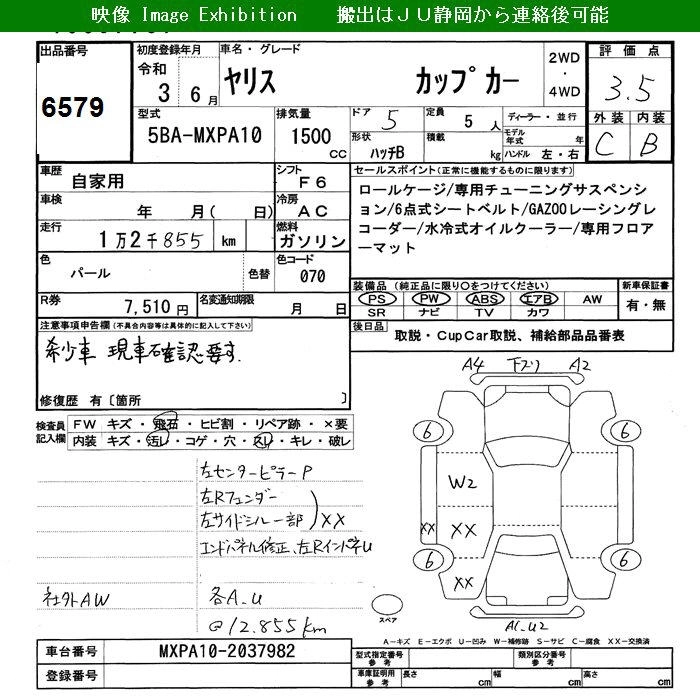 映像 Image Exhibition　　搬出はＪＵ静岡から連絡後可能
出品番号
6579
初度登録年月
令和
3 6月
車名・グレード
ヤリス　カップカー
2WD
・
4WD
評価点
3.5
外装 内装
C B
型式
5BA-MXPA10
排気量
1500
CC
ドア 5
定員 5 人
ディーラー・並行
形状 ハッチB
積載 kg
モデル年式 年
ハンドル 左・右
車歴 自家用
シフト F6
車検 年 月( 日)
冷房 AC
走行 1万2千855 km
燃料 ガソリン
色 パール 色替
色コード 070
R券 7,510円
名変通知期限 月 日
セールスポイント(正常に機能するものに限ります)
ロールケージ/専用チューニングサスペンシ
ョン/6点式シートベルト/GAZOOレーシングレ
コーダー/水冷式オイルクーラー/専用フロア
ーマット
装備品 (純正品に限り○をつけてください)
PS PW ABS エアB AW
SR ナビ TV カワ
新車保証書
有・無
後日品 取説・CupCar取説、補給部品品番表
注意事項申告欄(不具合内容等は具体的に記入して下さい)
希少車 現車確認要す.
修復歴 有〔箇所 〕
検査員
記入欄
FW キズ・飛石・ヒビ割・リペア跡・×要
内装 キズ・汚レ・コゲ・穴・スレ・キレ・破レ
左センターピラーP
左Rフェンダー
左サイドシル一部 ) XX
エンドパネル修正、左RインパネU
社外AW
各A.U
@12.855km
A4 下ズリ A2
6 6
W2
XX XX
6 6
XX
A1.U2
スペア
A―キズ E―エクボ U―凹み W―補修跡 S―サビ C―腐食 XX―交換済
車台番号 MXPA10-2037982
登録番号
型式指定番号 参考
類別区分番号 参考
車庫証明用 参考
長さ cm 幅 cm 高さ cm